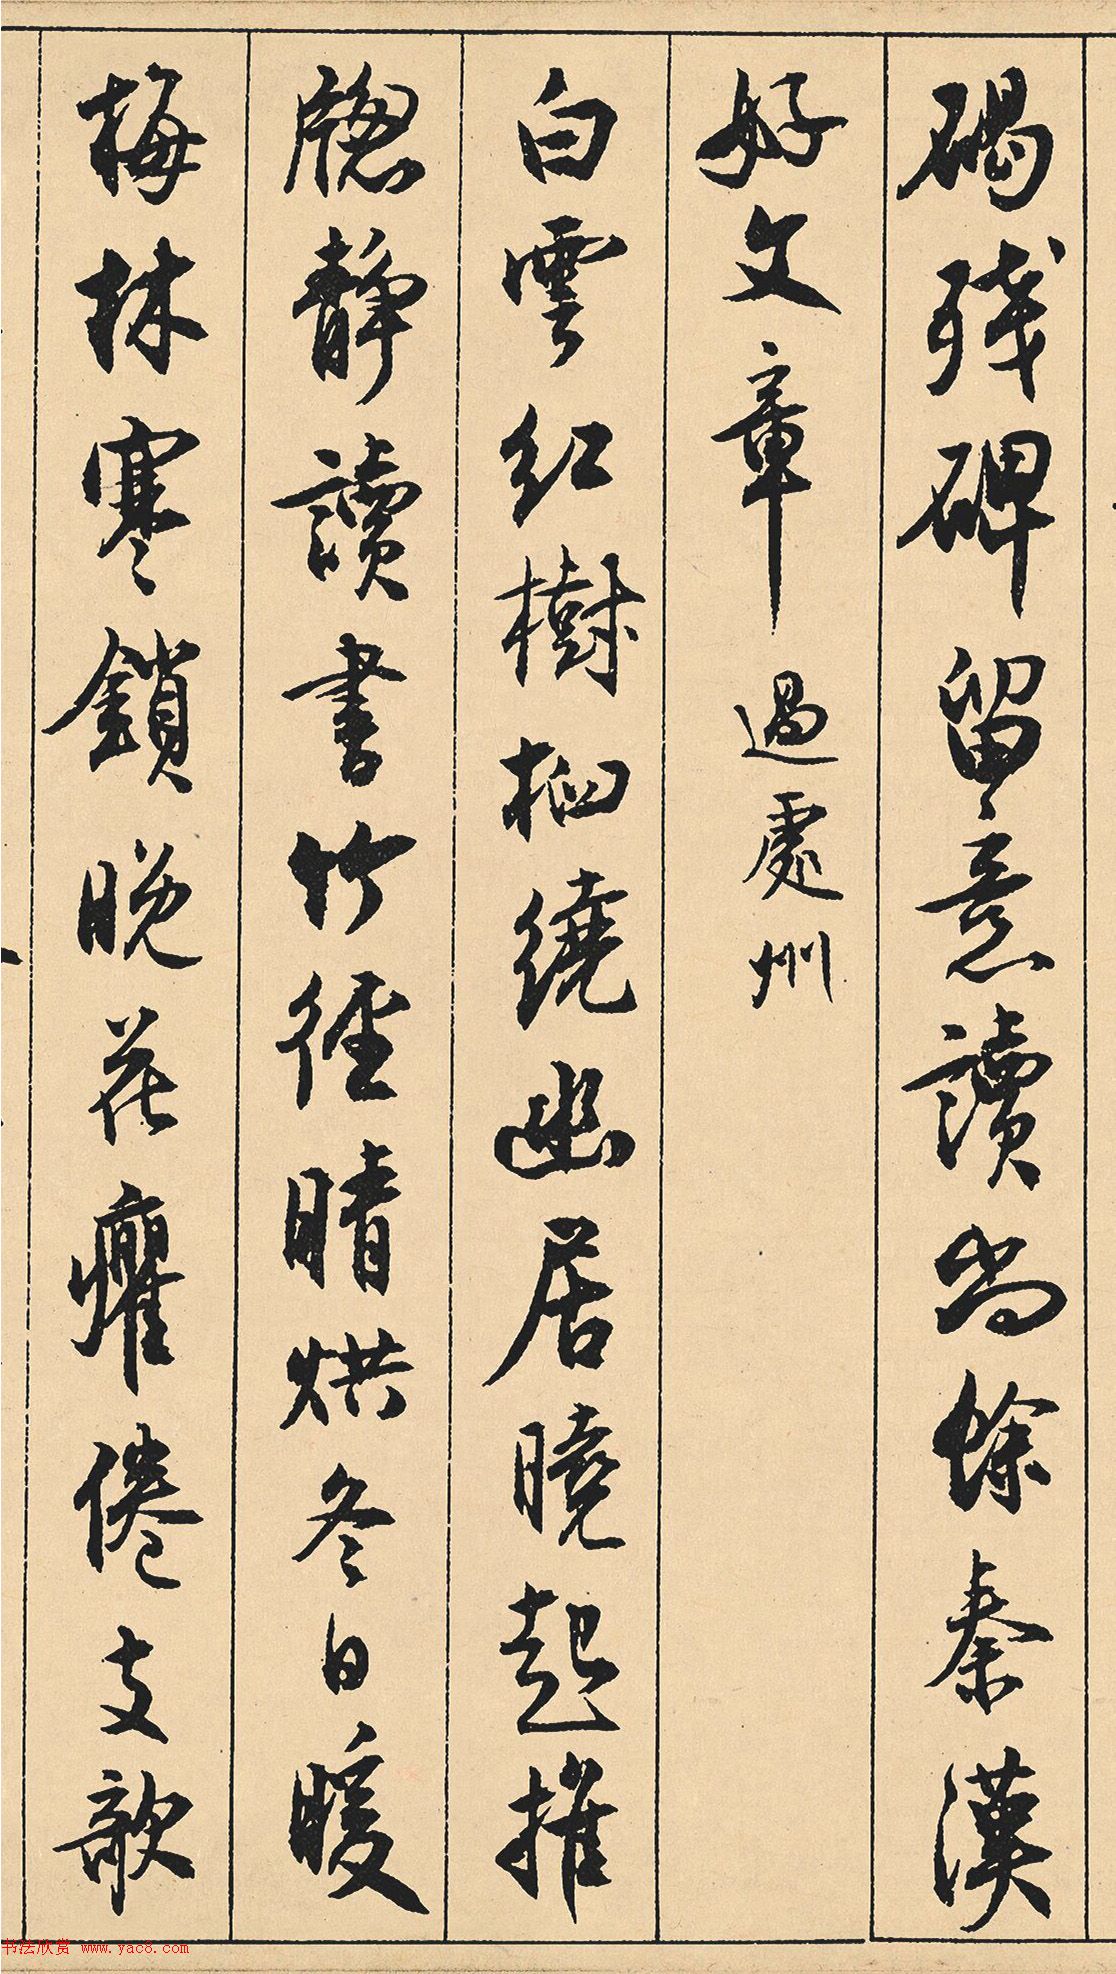 碣残碑留意讀尚餘秦漢
好文章 過處州
白雲紅樹桕繞幽居曉起推
牕靜讀書竹徑晴烘冬日暖
梅林寒鎖晚花癯倦支欹
书法欣赏 www.yac8.com